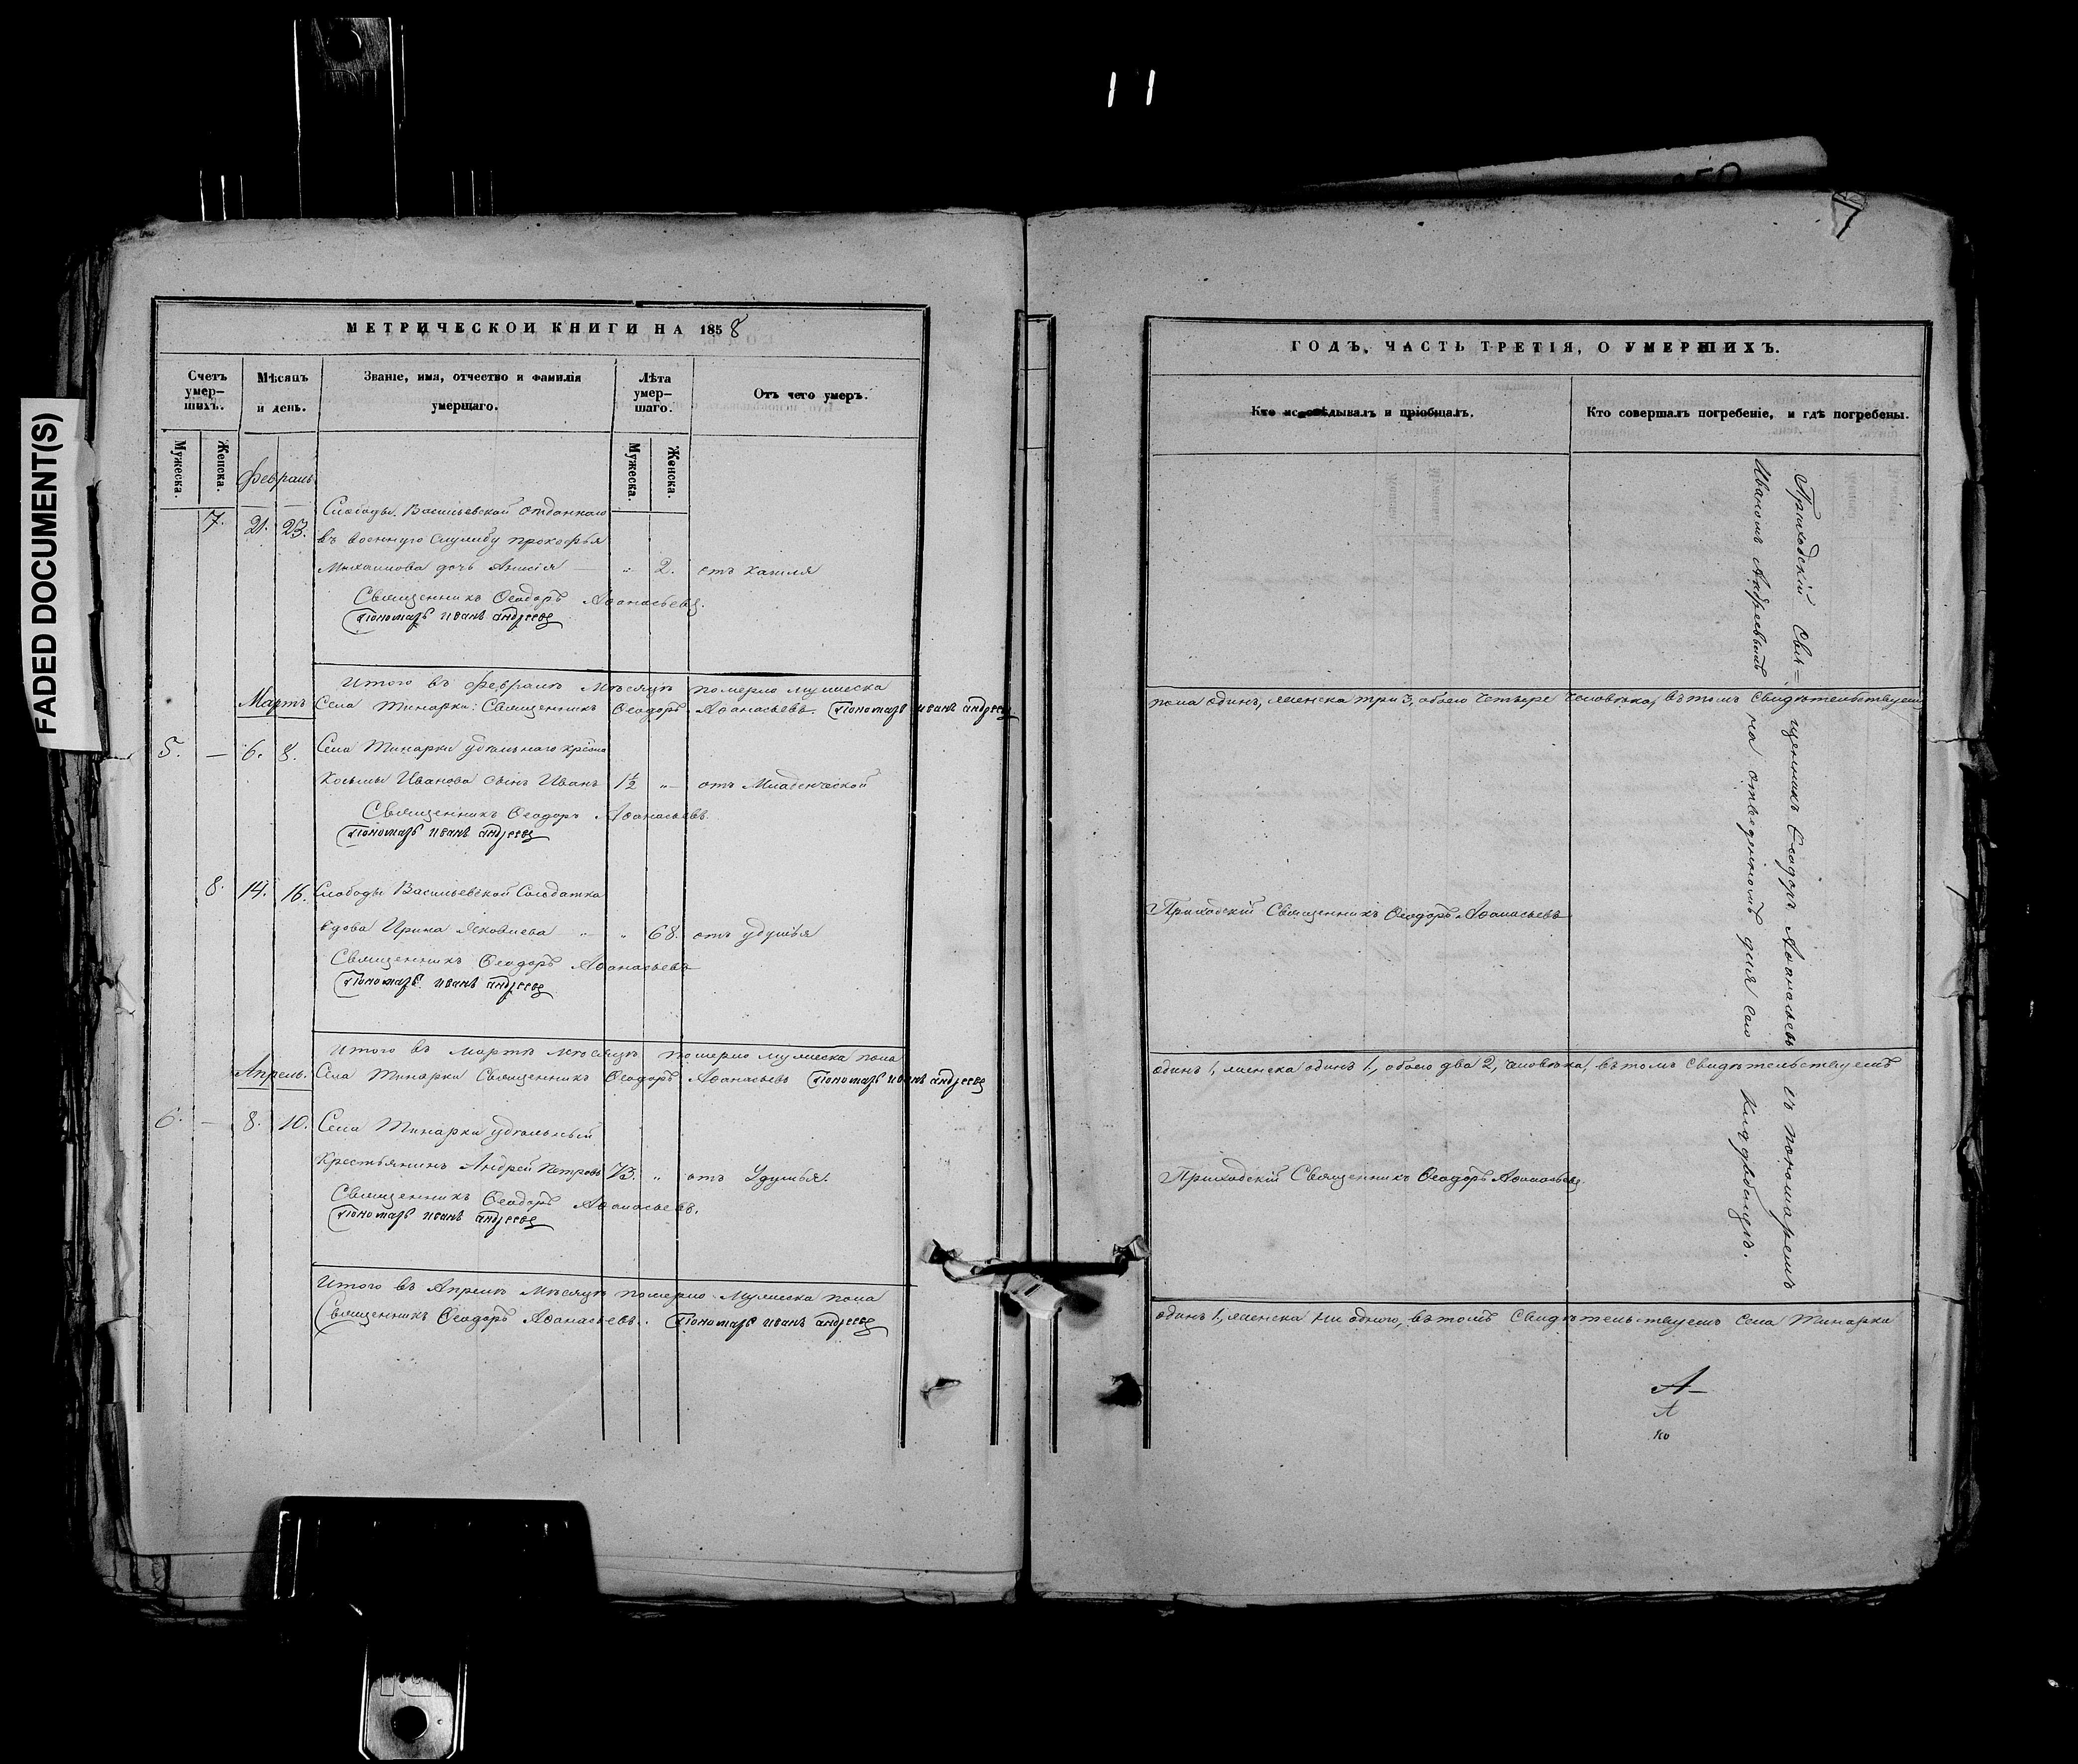 FADED DOCUMENT(S)
11
7
МЕТРИЧЕСКОЙ КНИГИ НА 1858
Счетъ умер-шихъ.
Мѣсяцъ и день.
Званіе, имя, отчество и фамилія умершаго.
Лѣта умер-шаго.
Отъ чего умеръ.
Мужеска.
Женска.
Мужеска.
Женска.
Февраль
Слободы Васильевской отданнаго
7. 21. 23. въ военную службу Прокофья
Михайлова дочь Анисія — „ 2. отъ кашля
Священникъ Ѳеодоръ Аѳанасьевъ.
Пономарь Иванъ Андреевъ
Итого въ Февралѣ мѣсяцѣ померло мужеска
Мартъ Села Тинарки: Священникъ Ѳеодоръ Аѳанасьевъ. Пономарь Иванъ Андреевъ
5. — 6. 8. Села Тинарки удѣльнаго крестья
Косьмы Иванова сынъ Иванъ 1½ „ отъ Младенческой
Священникъ Ѳеодоръ Аѳанасьевъ.
Пономарь Иванъ Андреевъ
8. 14. 16. Слободы Васильевской Солдатка
вдова Ирина Яковлева „ 68. отъ удушья
Священникъ Ѳеодоръ Аѳанасьевъ
Пономарь Иванъ Андреевъ
Итого въ Мартѣ мѣсяцѣ померло мужеска пола
Апрель. Села Тинарки Священникъ Ѳеодоръ Аѳанасьевъ Пономарь Иванъ Андреевъ
6. — 8. 10. Села Тинарки удѣльный
Крестьянинъ Андрей Петровъ 73. „ отъ Удушья.
Священникъ Ѳеодоръ Аѳанасьевъ.
Пономарь Иванъ Андреевъ
Итого въ Апрелѣ Мѣсяцѣ померло мужеска пола
Священникъ Ѳеодоръ Аѳанасьевъ. Пономарь Иванъ Андреевъ
ГОДЪ, ЧАСТЬ ТРЕТІЯ, О УМЕРШИХЪ.
Кто исповѣдывалъ и пріобщалъ.
Кто совершалъ погребеніе, и гдѣ погребены.
Приходскій Священникъ Ѳеодоръ Аѳанасьевъ съ пономаремъ
Иваномъ Андреевымъ на отведенномъ для сего кладбищѣ.
пола одинъ, женска три 3, обоего четыре человѣка, въ томъ свидѣтельствуемъ
Приходскій Священникъ Ѳеодоръ Аѳанасьевъ
одинъ 1, женска одинъ 1, обоего два 2, человѣка, въ томъ свидѣтельствуемъ
Приходскій Священникъ Ѳеодоръ Аѳанасьевъ.
одинъ 1, женска ни одного, въ томъ Свидѣтельствуемъ Села Тинарки
А
А
ко